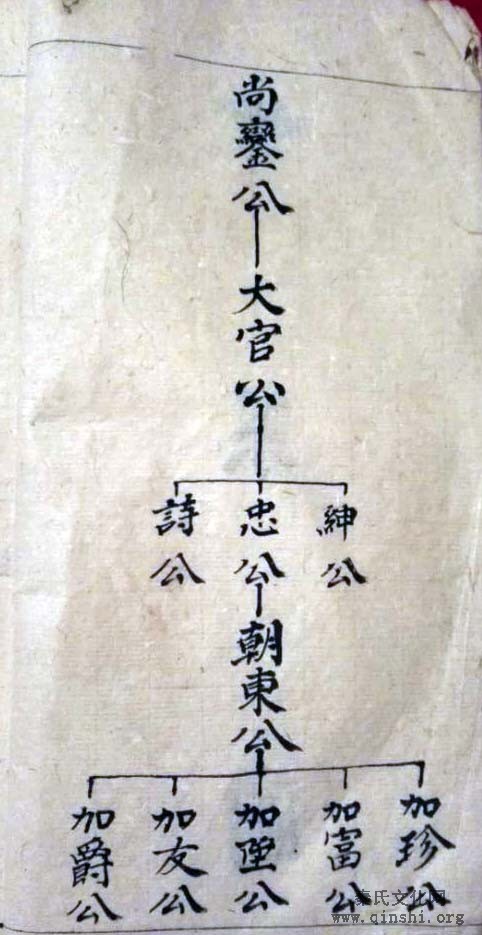 尚鑾公
大官公
紳公
忠公
詩公
朝東公
加珍公
加富公
加陞公
加友公
加爵公
秦氏文化网
www.qinshi.org